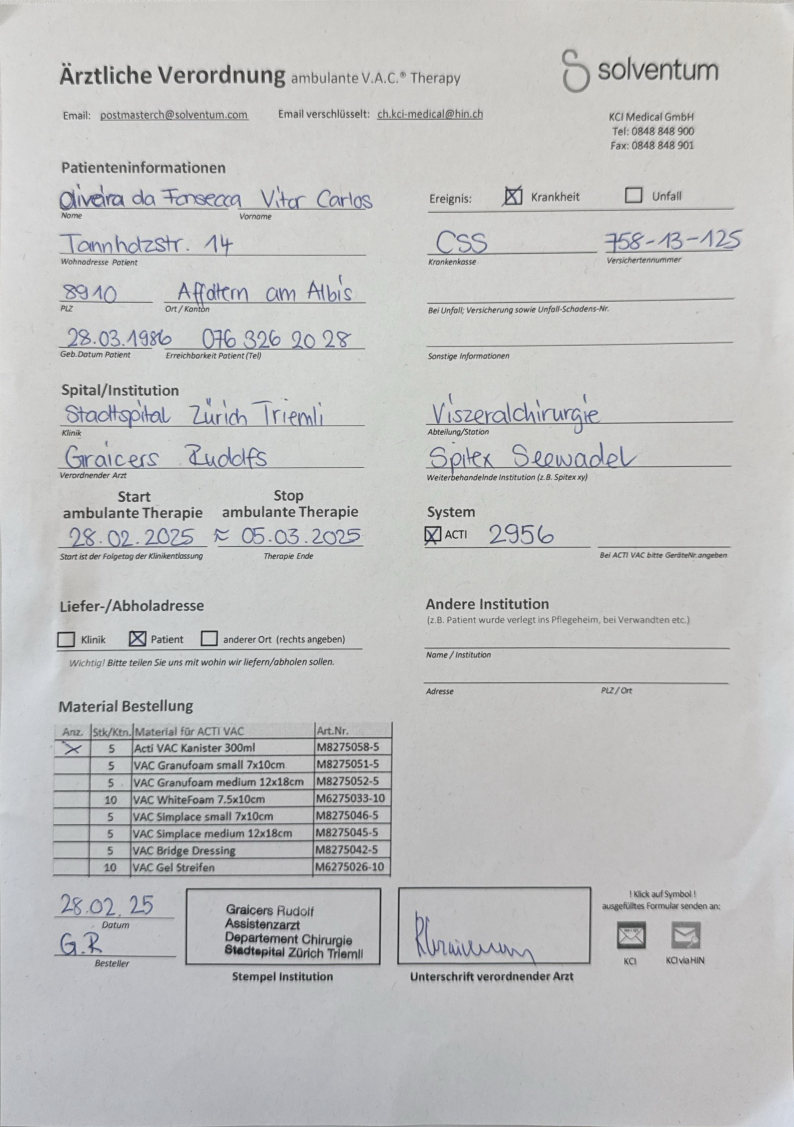 Ärztliche Verordnung ambulante V.A.C.® Therapy
solventum
Email: postmasterch@solventum.com Email verschlüsselt: ch.kci-medical@hin.ch
KCI Medical GmbH
Tel: 0848 848 900
Fax: 0848 848 901
Patienteninformationen
Oliveira da Fonsecca Vitor Carlos
Name Vorname
Ereignis: Krankheit Unfall
Tannholzstr. 14
Wohnadresse Patient
CSS 758-13-125
Krankenkasse Versichertennummer
8910 Affoltern am Albis
PLZ Ort / Kanton
Bei Unfall; Versicherung sowie Unfall-Schadens-Nr.
28.03.1986 076 326 20 28
Geb.Datum Patient Erreichbarkeit Patient (Tel)
Sonstige Informationen
Spital/Institution
Stadtspital Zürich Triemli
Klinik
Viszeralchirurgie
Abteilung/Station
Graicers Rudolfs
Verordnender Arzt
Spitex Seewadel
Weiterbehandelnde Institution (z.B. Spitex xy)
Start
ambulante Therapie
Stop
ambulante Therapie
28.02.2025 ≈ 05.03.2025
Start ist der Folgetag der Klinikentlassung Therapie Ende
System
ACTI 2956
Bei ACTI VAC bitte GeräteNr.angeben
Liefer-/Abholadresse
Klinik Patient anderer Ort (rechts angeben)
Wichtig! Bitte teilen Sie uns mit wohin wir liefern/abholen sollen.
Andere Institution
(z.B. Patient wurde verlegt ins Pflegeheim, bei Verwandten etc.)
Name / Institution
Adresse PLZ / Ort
Material Bestellung
Anz. Stk/Ktn. Material für ACTI VAC Art.Nr.
X 5 Acti VAC Kanister 300ml M8275058-5
5 VAC Granufoam small 7x10cm M8275051-5
5 VAC Granufoam medium 12x18cm M8275052-5
10 VAC WhiteFoam 7.5x10cm M6275033-10
5 VAC Simplace small 7x10cm M8275046-5
5 VAC Simplace medium 12x18cm M8275045-5
5 VAC Bridge Dressing M8275042-5
10 VAC Gel Streifen M6275026-10
28.02.25
Datum
G.R
Besteller
Graicers Rudolf
Assistenzarzt
Departement Chirurgie
Stadtspital Zürich Triemli
Stempel Institution
Unterschrift verordnender Arzt
! Klick auf Symbol !
ausgefülltes Formular senden an:
KCI KCI via HIN